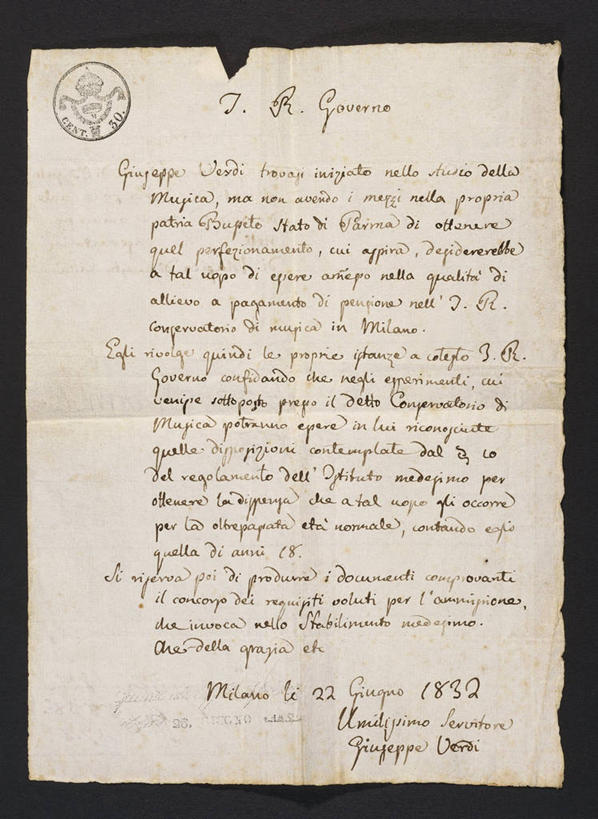 CENT. 30.
I. R. Governo
Giuseppe Verdi trovasi iniziato nello studio della
Musica, ma non avendo i mezzi nella propria
patria Busseto Stato di Parma di ottenere
quel perfezionamento, cui aspira, desidererebbe
a tal uopo di essere am̃esso nella qualità di
allievo a pagamento di pensione nell' I. R.
Conservatorio di musica in Milano.
Egli rivolge quindi le proprie istanze a cotesto I. R.
Governo confidando che negli esperimenti, cui
venisse sottoposto presso il detto Conservatorio di
Musica potranno essere in lui riconosciute
quelle disposizioni contemplate dal § 10
del regolamento dell' Istituto medesimo per
ottenere la dispensa che a tal uopo gli occorre
per la oltrepassata età normale, contando esso
quella di anni 18.
Si riserva poi di produrre i documenti comprovanti
il concorso dei requisiti voluti per l'ammissione,
che invoca nello Stabilimento medesimo.
Che della grazia etc
Milano li 22 Giugno 1832
Umilissimo Servitore
Giuseppe Verdi